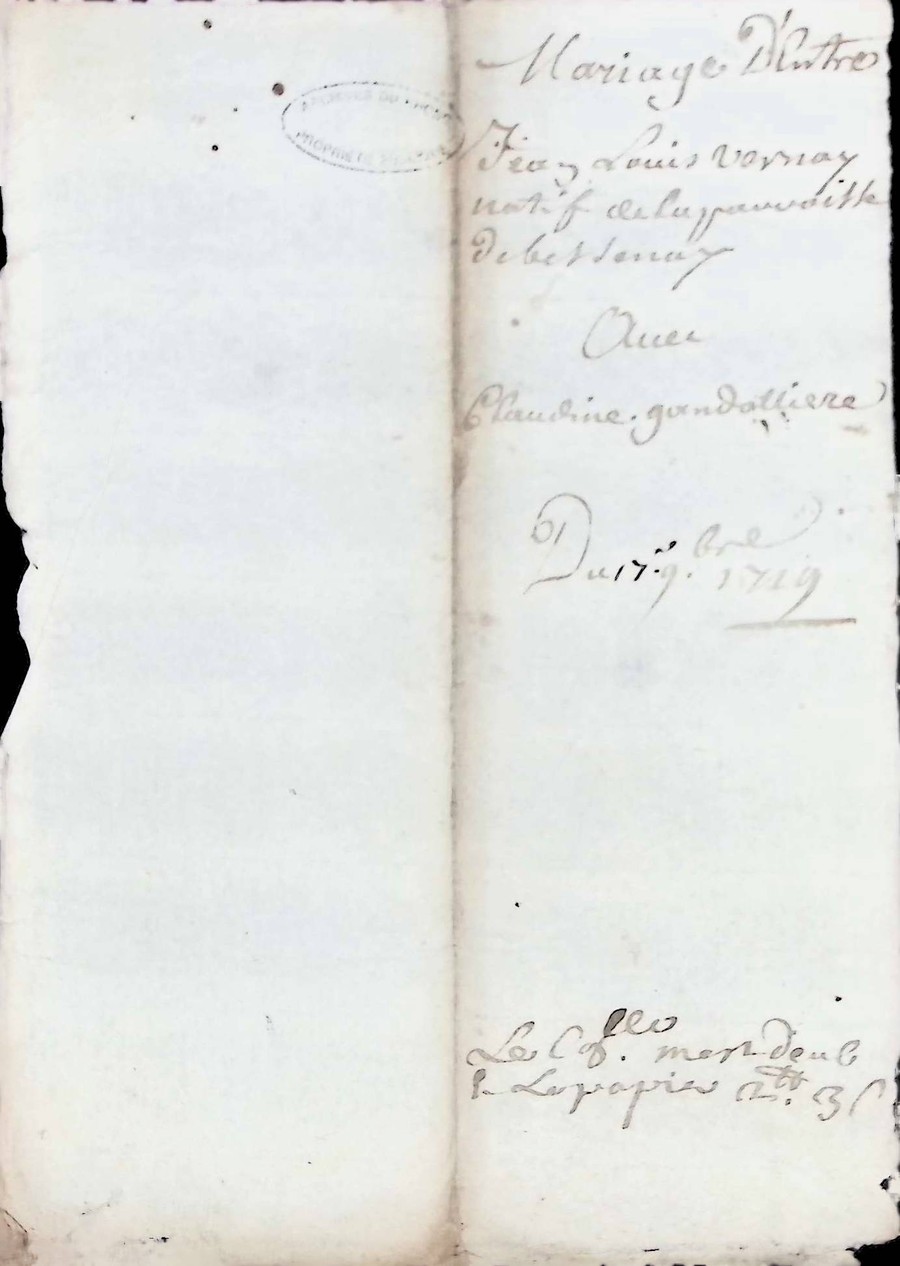 ARCHIVES DU RHONE
PROPRIÉTÉ PUBLIQUE
Mariage D'Entre
Jean Louis vernay
natif de la parroisse
de bessenay
Avec
Claudine gandolliere
Du 17.e 9.bre 1719
Le Con.lleo mest deub
le papier 2tt. 3 s